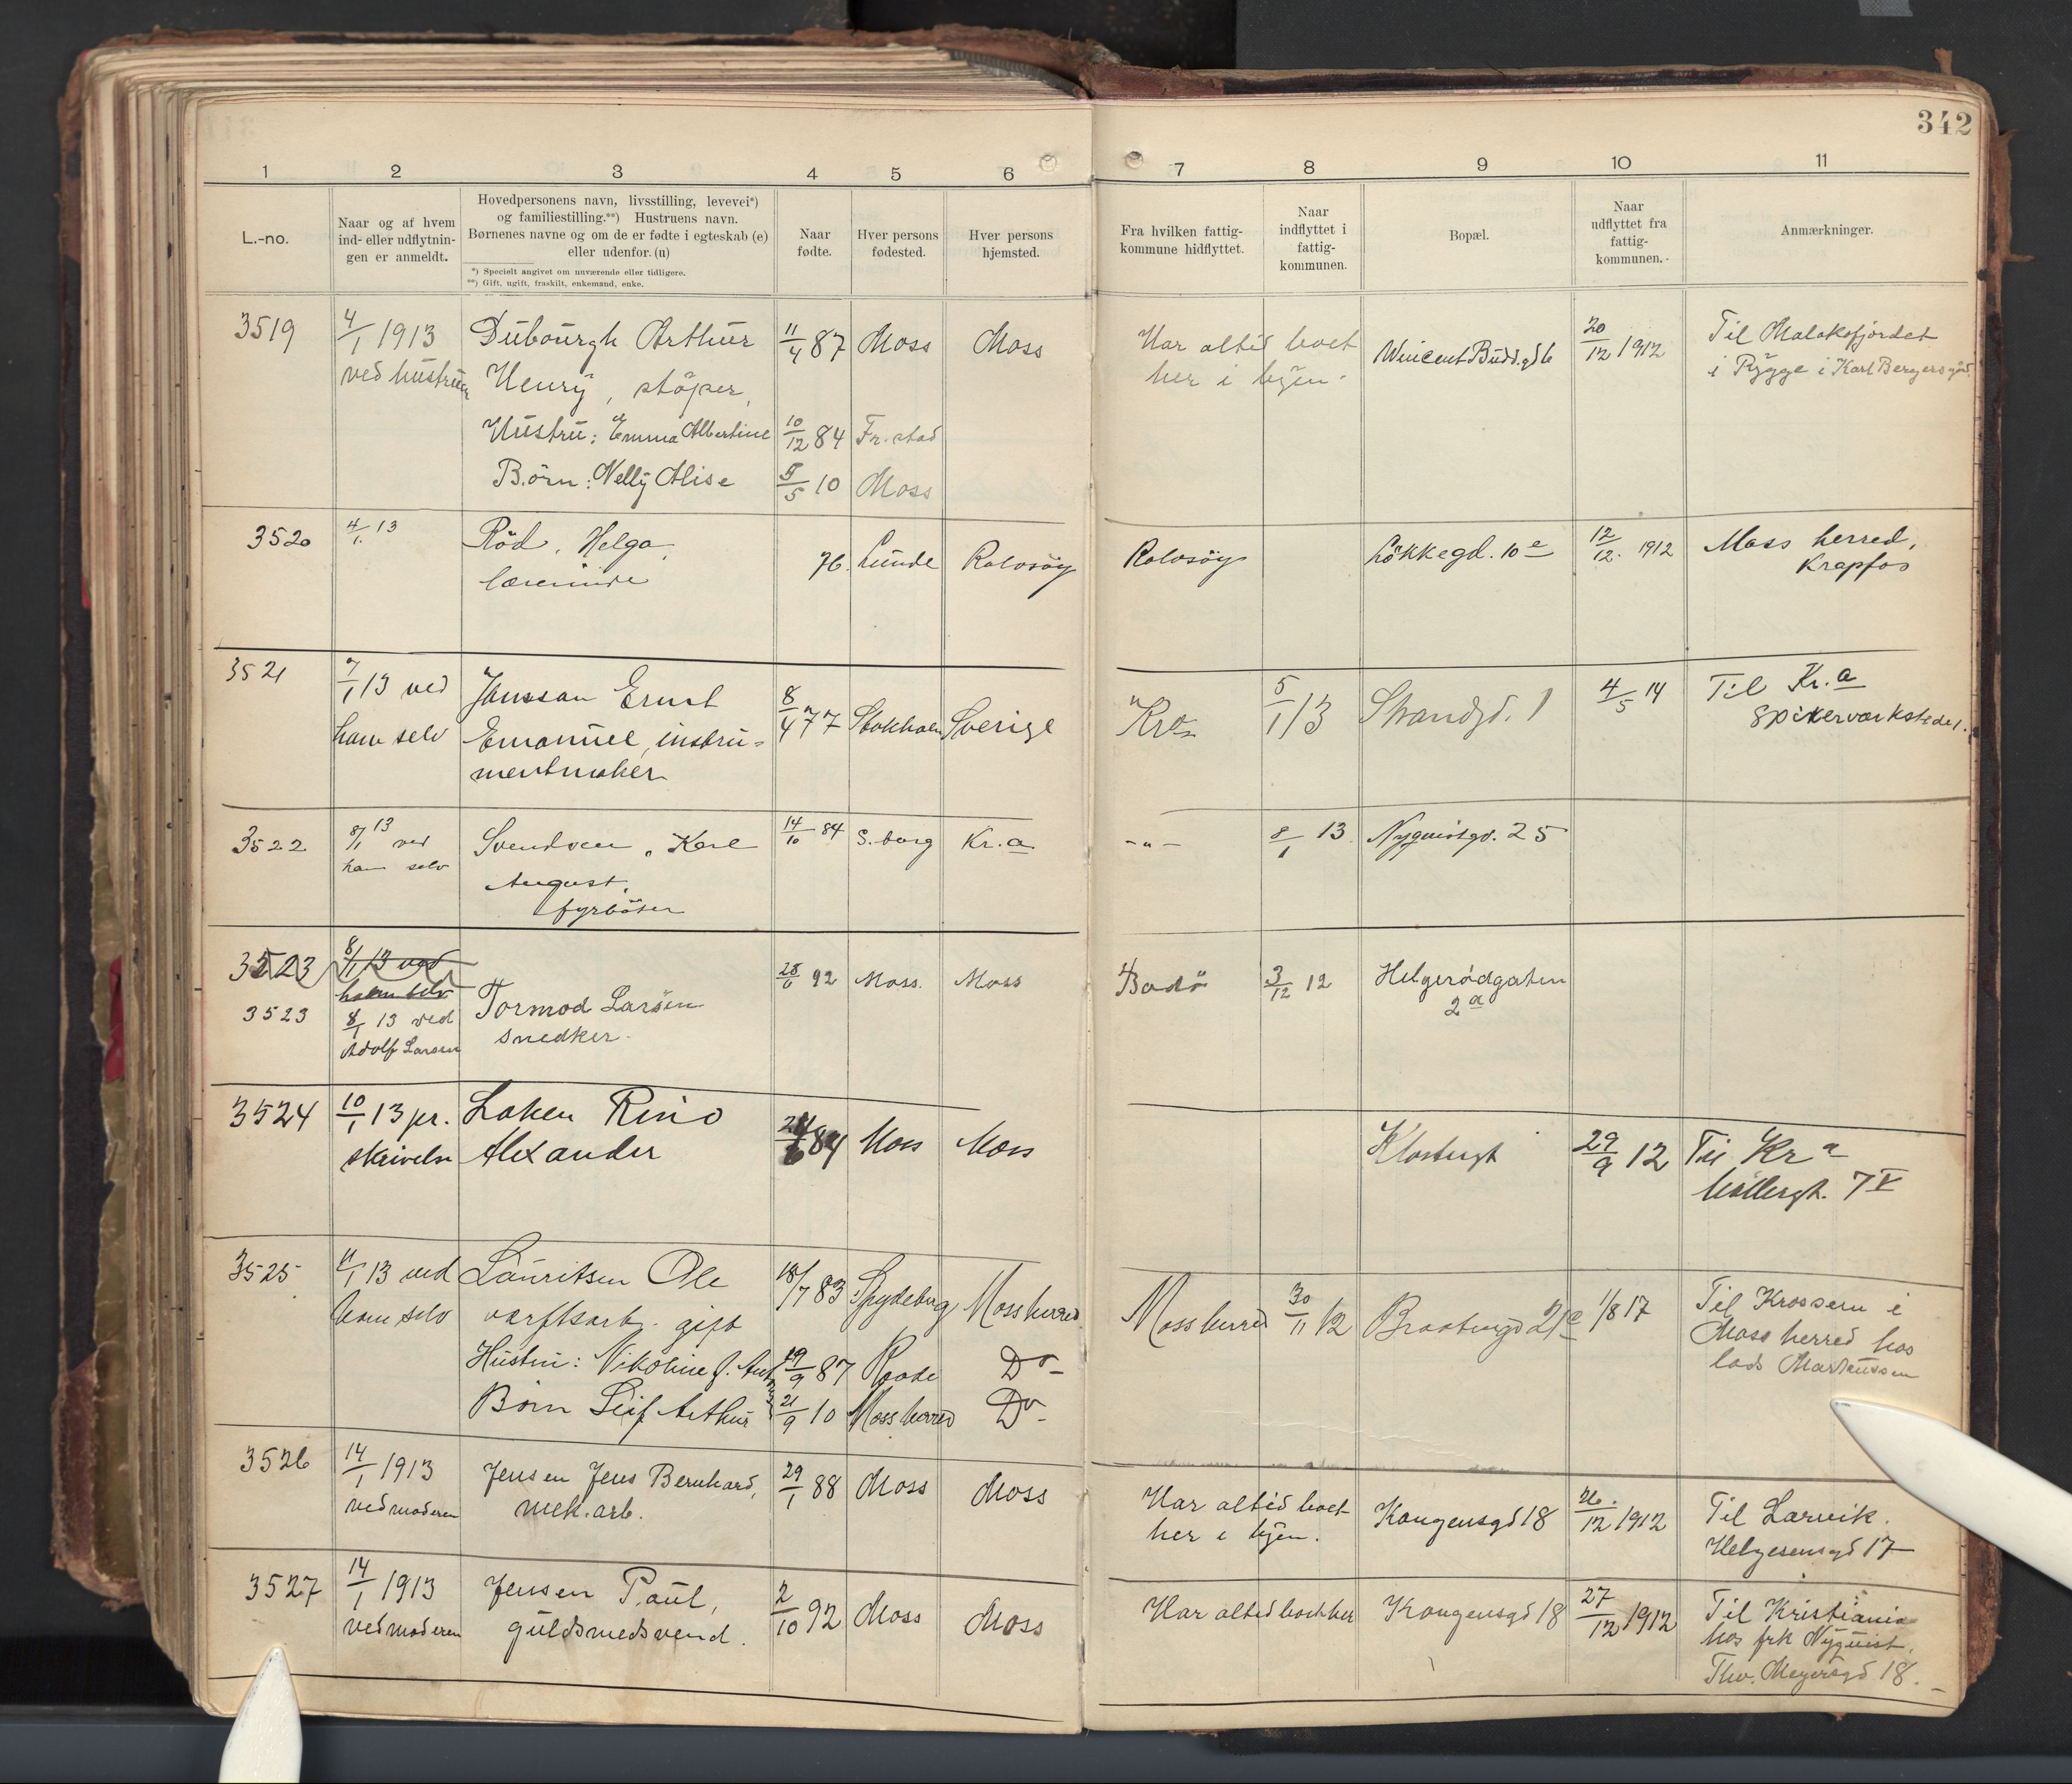 342
1 2 3 4 5 6 7 8 9 10 11
L.-no.
Naar og af hvem
ind- eller udflytnin-
gen er anmeldt.
Hovedpersonens navn, livsstilling, levevei*)
og familiestilling.**) Hustruens navn.
Børnenes navne og om de er fødte i egteskab (e)
eller udenfor. (u)
*) Specielt angivet om nuværende eller tidligere.
**) Gift, ugift, fraskilt, enkemand, enke.
Naar
fødte.
Hver persons
fødested.
Hver persons
hjemsted.
Fra hvilken fattig-
kommune hidflyttet.
Naar
indflyttet i
fattig-
kommunen.
Bopæl.
Naar
udflyttet fra
fattig-
kommunen.
Anmærkninger.
3519 4/1 1913 Dubourgh Arthur 11/4 87 Moss Moss Har altid boet Wincent Budd.gd 6 20/12 1912 Til Malakofjordet
ved hustruen Henry, støper, her i byen. i Rygge i Karl Bergers gård.
Hustru: Emma Albertine 10/12 84 Fr.stad
Børn: Nelly Alise 5/5 10 Moss
3520 4/1 13 Röd, Helga, 76. Lunde Rolvsöy Rolvsöy Lökkegd. 10 e 12/12. 1912 Moss herred,
lærerinde Krapfos
3521 7/1 13 ved Jansson Ernst 8/4 77 Stokholm Sverige Kra 5/1 13 Strandgd. 1 4/5 14 Til Kr.a
ham selv Emanuel, instru- Spikerverkstedet.
mentmaker
3522 8/1 13 ved Svendsen, Karl 14/10 84 S.borg Kr.a - " - 8/1 13 Nyquistgd. 25
ham selv August,
fyrböter
3523 8/1 13 ved
ham selv
3523 8/1 13 ved Tormod Larsen 28/6 92 Moss. Moss Bodö 3/12 12 Helgerödgaten
Adolf Larsen snedker. 2a
3524 10/1 13 pr. Loken Rino 84 Moss Moss Klostergt 29/9 12 Til Kr a
skrivelse Alexander Möllergt. 7 V
3525 11/1 13 ved Lauritsen Ole 18/7 83 Spydeberg Moss herred Moss herred 30/11 12 Braatengd 21 e 1/8 17 Til Krossern i
ham selv verftsarb. gift Moss herred hos
Hustru: Nikoline f. 19/9 87 Raade Do - lods Martinssen
Børn Leif Arthur 21/9 10 Moss herred Do -
3526 14/1 1913 Jensen Jens Bernhard, 29/1 88 Moss Moss Har altid boet Kongensgd 18 26./12 1912 Til Larvik.
ved moderen mek. arb. her i byen. Helgesensgd 17
3527 14/1 1913 Jensen Paul, 2/10 92 Moss Moss Har altid boet her Kongensgd 18 27/12 1912 Til Kristiania
ved moderen guldsmedsvend. hos frk Nyquist,
Thv. Meyersgd 18. -